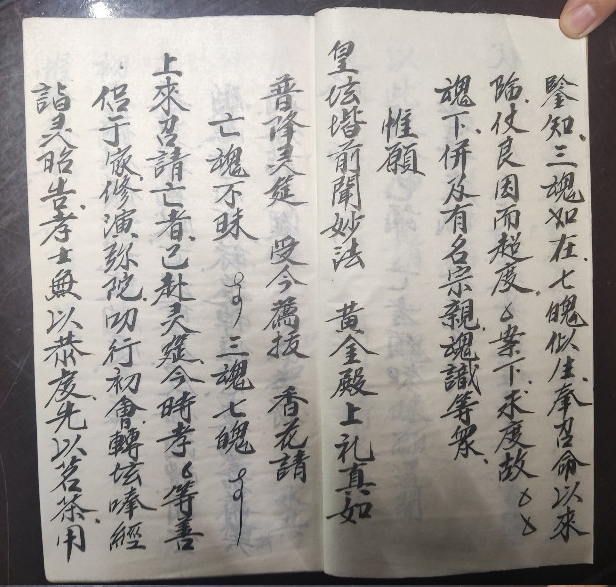 鑒知三魂如在七魄似生奉召命以來
臨仗良因而超度〻案下未度故〻〻
魂下併及有名宗親魂識等衆
惟願
皇坛堦前聞妙法 黄金殿上礼真如
普降灵筵 受今薦拔 香花請
亡魂不昧 三魂七魄
上來召請亡者已赴灵筵今時孝〻等善
侣于家修演弥院叨行初會轉坛唪經
詣灵昭告孝士無以恭虔先以茗茶用